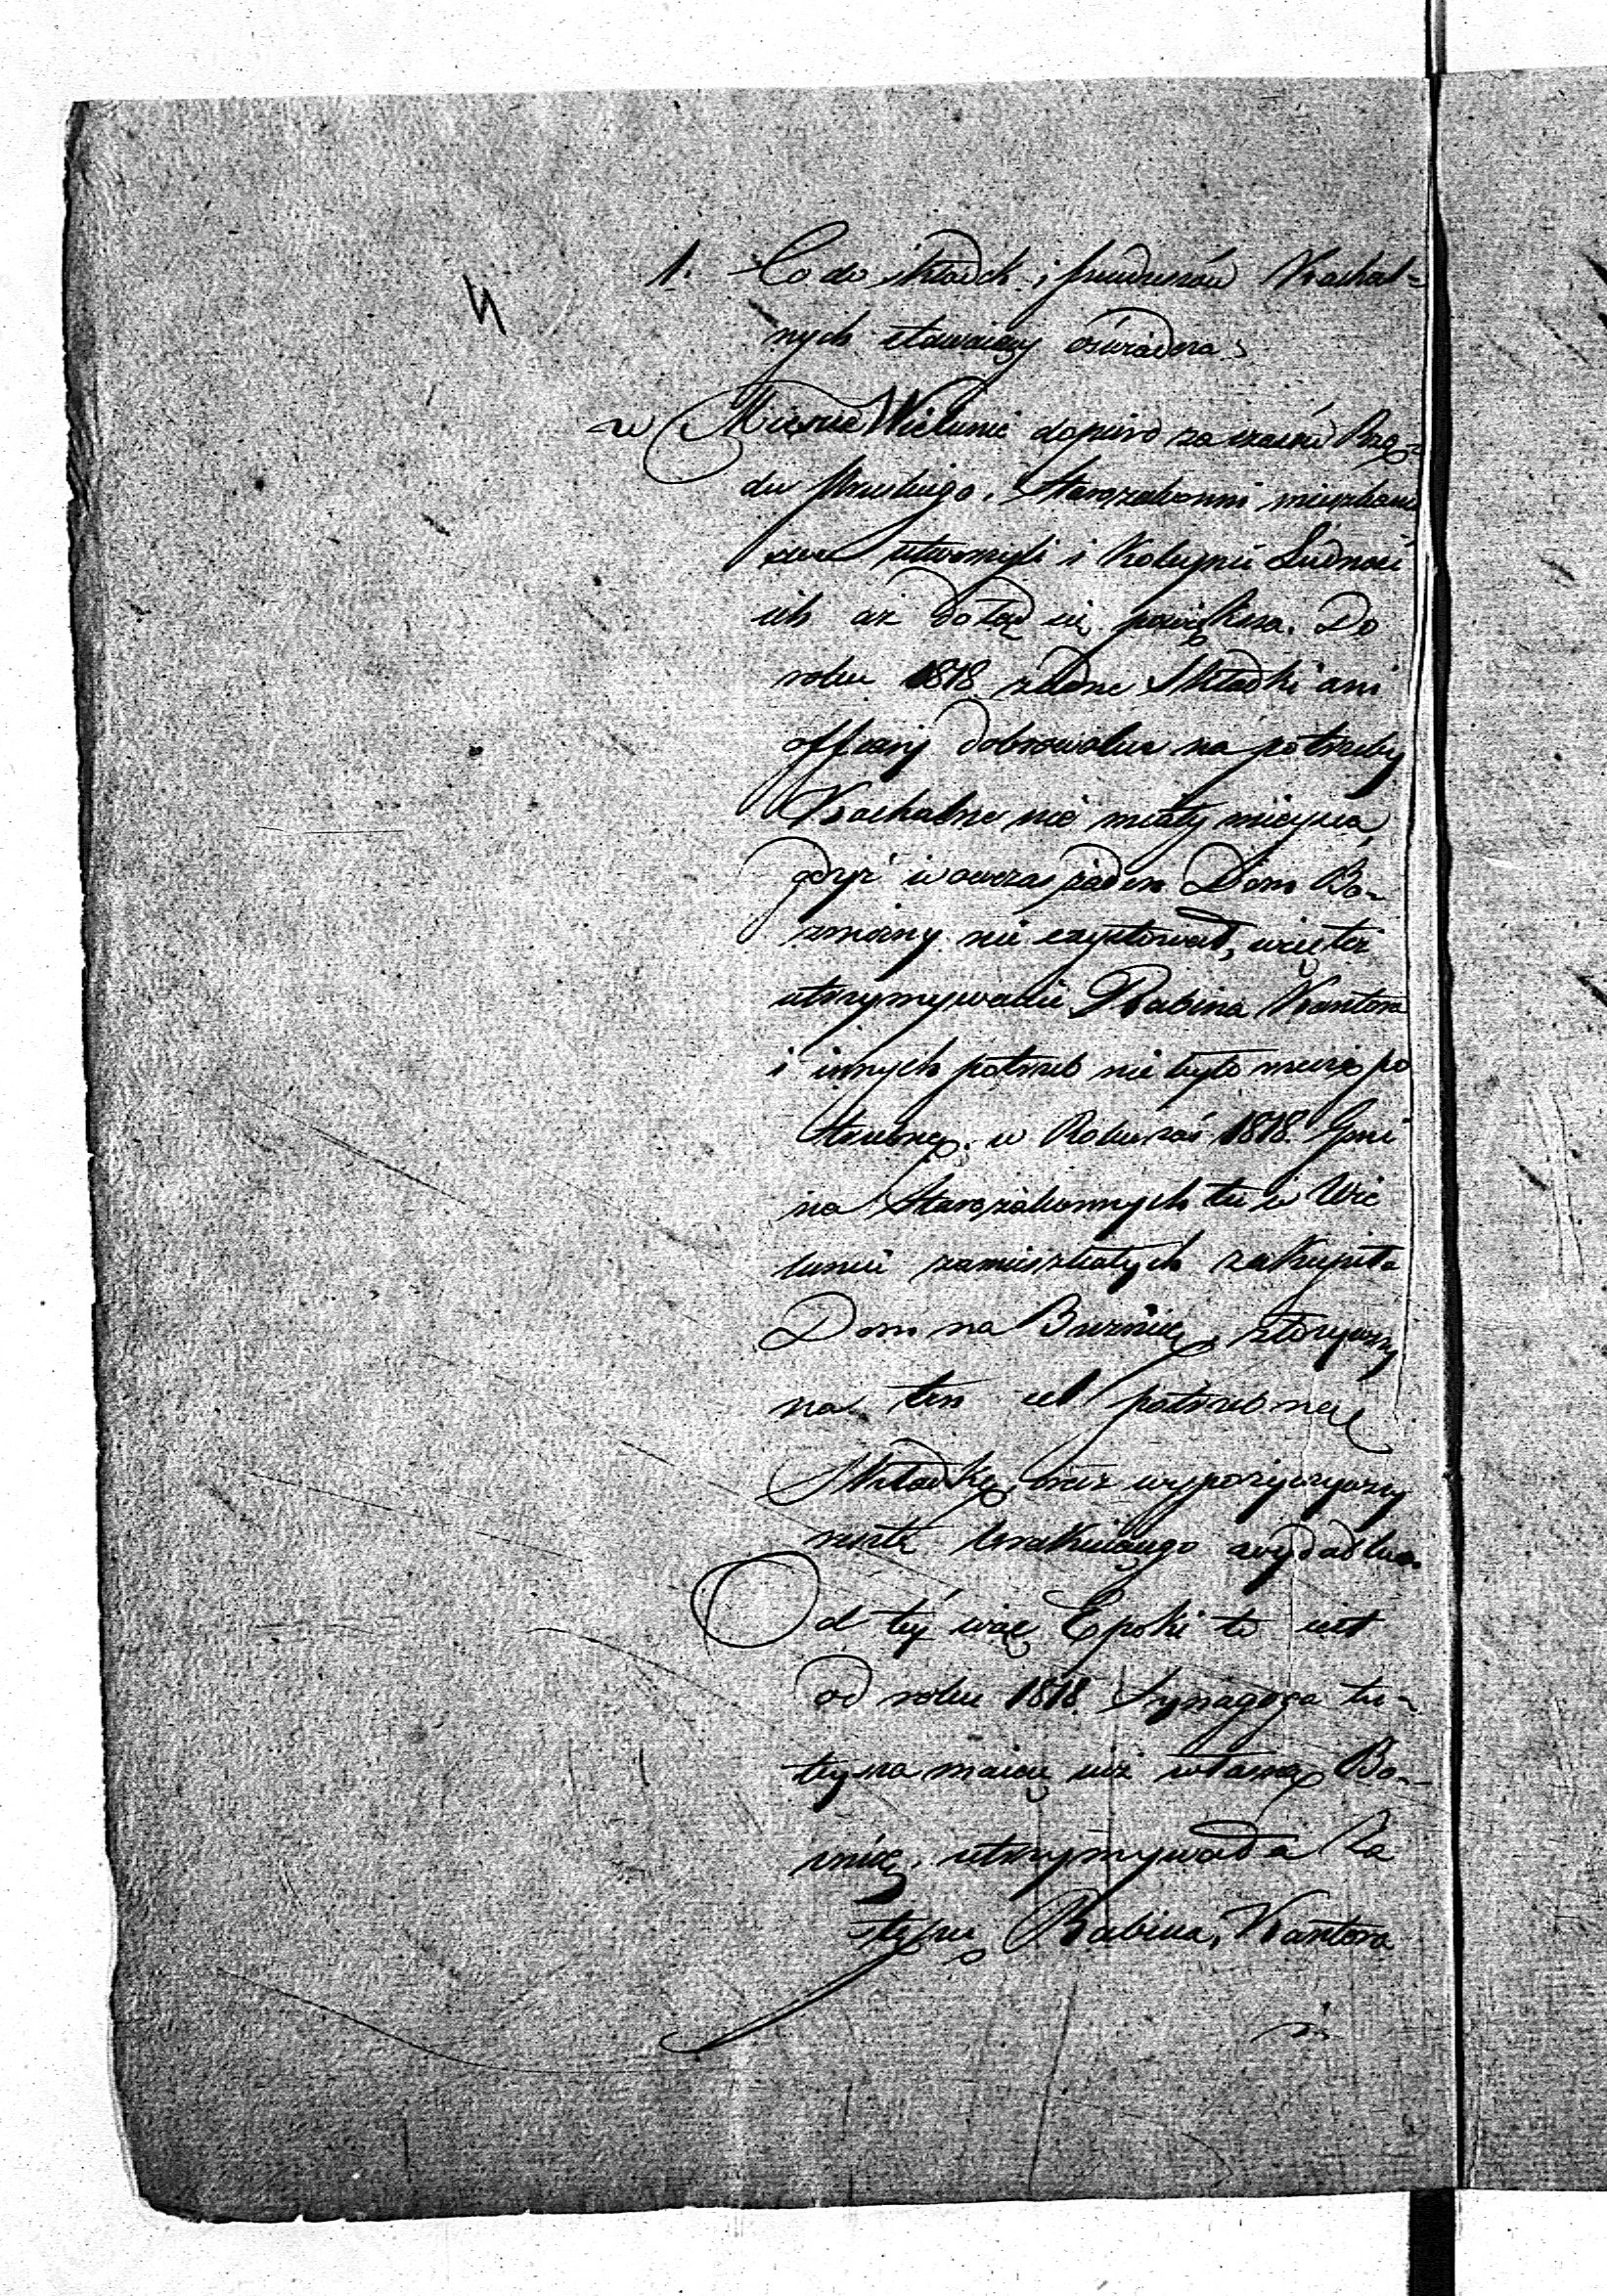 1. Co do składek i funduszów Kachal=
nych stawaiący oświadcza
w Mieście Wieluniu dopiero za czasów Rzą=
du Pruskiego. Starozakonni mieszkanie
swe utworzyli i Koleynie Ludność
ich aż dotąd się powiększa. Do
roku 1818 żadne Składki ani
offiary dobrowolne na potrzeby
Kachalne nie miały mieysca,
gdyż wówczas żaden Dom Bo-
żniczny nie exystował, więc też
utrzymywanie Rabina Kantora
i innych potrzeb nie było rzeczą po
trzebną. w Roku zaś 1818. Gmi
na Starozakonnych tu w Wie
luniu zamieszkałych zakupiła
Dom na Bużnicę, złożywszy
na ten cel potrzebną
Składkę, oraz wypożyczywszy
resztę brakuiącego wydatku.
Od téy więc Epoki to iest
od roku 1818. Synagoga tu-
teysza maiąc iuż własną Bo-
żnicę, utrzymywała Za
stępcę Rabina, Kantora
i